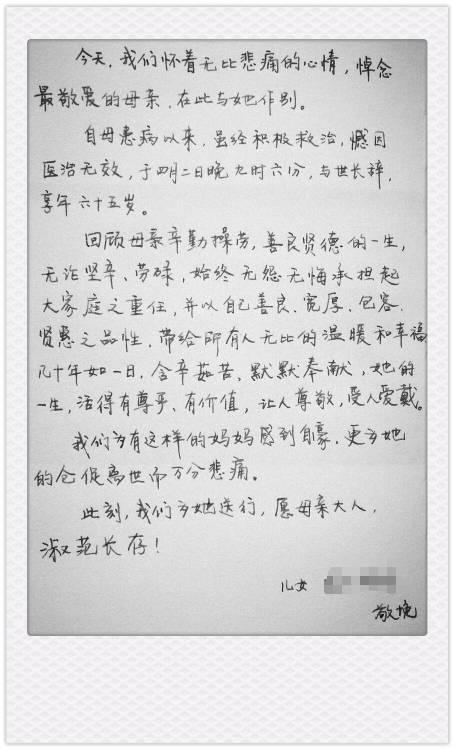 今天，我们怀着无比悲痛的心情，悼念
最敬爱的母亲，在此与她作别。
自母患病以来，虽经积极救治，憾因
医治无效，于四月二日晚九时六分，与世长辞，
享年六十五岁。
回顾母亲辛勤操劳，善良贤德的一生，
无论坚辛、劳碌，始终无怨无悔承担起
大家庭之重任，并以自己善良、宽厚、包容、
贤惠之品性，带给所有人无比的温暖和幸福
几十年如一日，含辛茹苦、默默奉献，她的
一生，活得有尊乎、有价值，让人尊敬，受人爱戴。
我们为有这样的妈妈感到自豪，更为她
的仓促离世而万分悲痛。
此刻，我们为她送行，愿母亲大人，
淑范长存！
儿女
敬挽